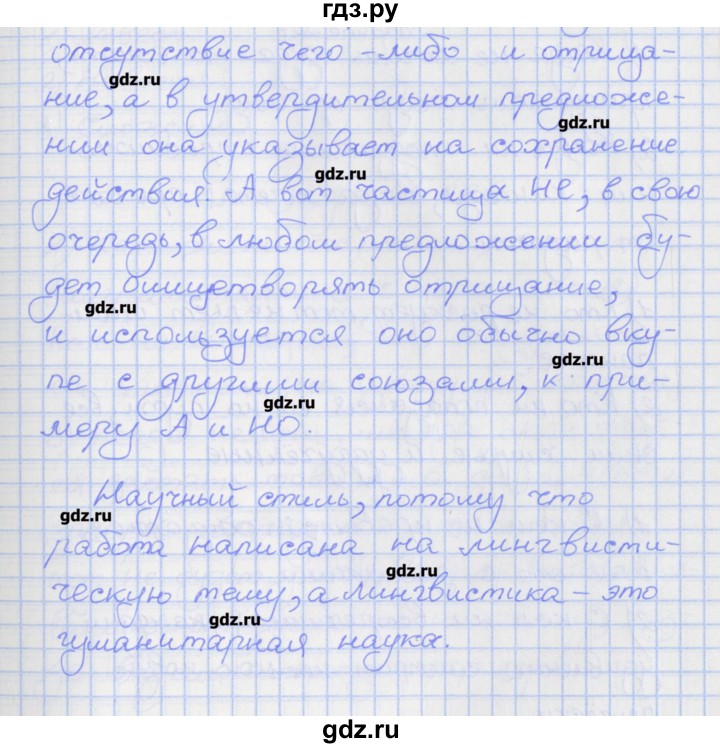 гдз.ру
отсутствие чего-либо и отрица-
gdz.ru
ние, а в утвердительном предложе-
gdz.ru
нии она указывает на сохранение
gdz.ru
действия. А вот частица НЕ, в свою
очередь, в любом предложении бу-
дет олицетворять отрицание,
gdz.ru
и используется оно обычно вку-
gdz.ru
пе с другими союзами, к при-
gdz.ru
меру А и НО.
Научный стиль, потому что
gdz.ru
работа написана на лингвисти-
gdz.ru
ческую тему, а лингвистика - это
gdz.ru
гуманитарная наука.
gdz.ru